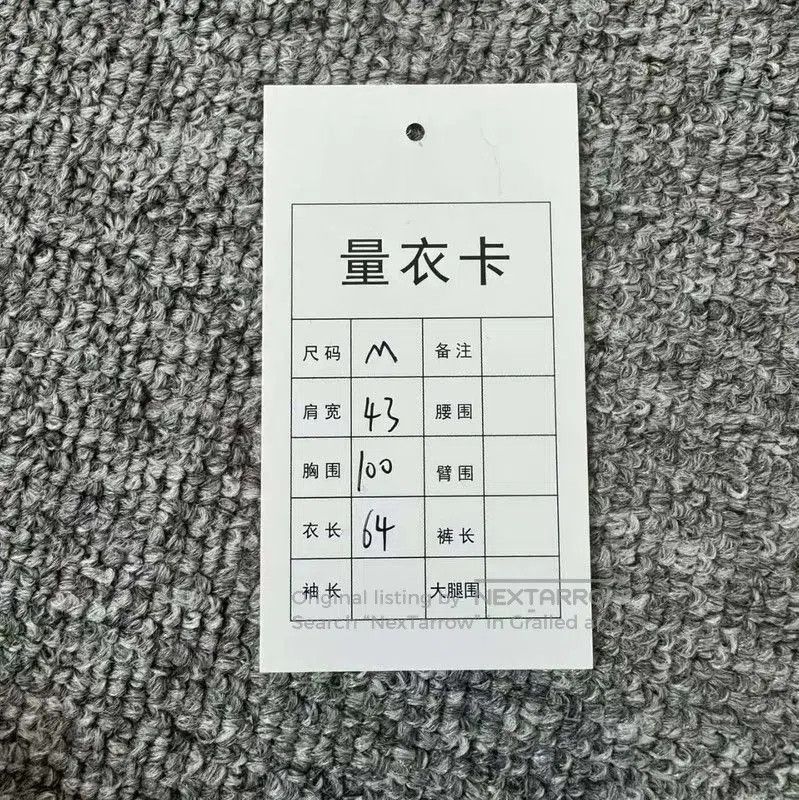 量衣卡
尺码 M 备注
肩宽 43 腰围
胸围 100 臂围
衣长 64 裤长
袖长 大腿围
Original listing by NEXTARROW
Search "NexTarrow" in Grailed a